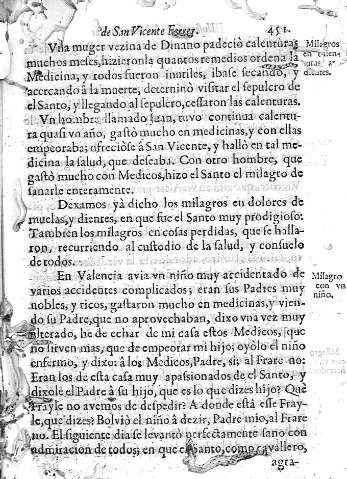 de San Vicente Ferrer. 451.
Vna muger vezina de Dinano padeciò calenturas
muchos meses, hizieronla quantos remedios ordena la
Medicina, y todos fueron inutiles, ibase secando, y
acercando à la muerte, determinò visitar el sepulcro de
el Santo, y llegando al sepulcro, cessaron las calenturas.
Milagros
en calentu
ras y
dientes.
Vn hombre llamado Iuan, tuvo continua calentu-
ra quasi vn año, gastò mucho en medicinas, y con ellas
empeoraba; ofreciòse à San Vicente, y hallò en tal me-
dicina la salud, que deseaba. Con otro hombre, que
gastò mucho con Medicos, hizo el Santo el milagro de
sanarle enteramente.
Dexamos yà dicho los milagros en dolores de
muelas, y dientes, en que fue el Santo muy prodigioso:
Tambien los milagros en cosas perdidas, que se halla-
ron, recurriendo al custodio de la salud, y consuelo
de todos.
En Valencia avia vn niño muy accidentado de
varios accidentes complicados; eran sus Padres muy
nobles, y ricos, gastaron mucho en medicinas, y vien-
do su Padre, que no aprovechaban, dixo vna vez muy
alterado, he de echar de mi casa estos Medicos, que
no sirven mas, que de empeorar mi hijo; oyòlo el niño
enfermo, y dixo: à los Medicos, Padre, si; al Frare no:
Eran los de esta casa muy apasionados de el Santo, y
dixole el Padre à su hijo, que es lo que dizes hijo? Què
Frayle no avemos de despedir? A donde està esse Fray-
le, que dizes? Bolviò el niño à dezir, Padre mio, al Fra-
re no. El siguiente dia se levantò perfectamente sano con
admiracion de todos; en que el Santo, como cavallero,
Milagro
con vn
niño.
agra-